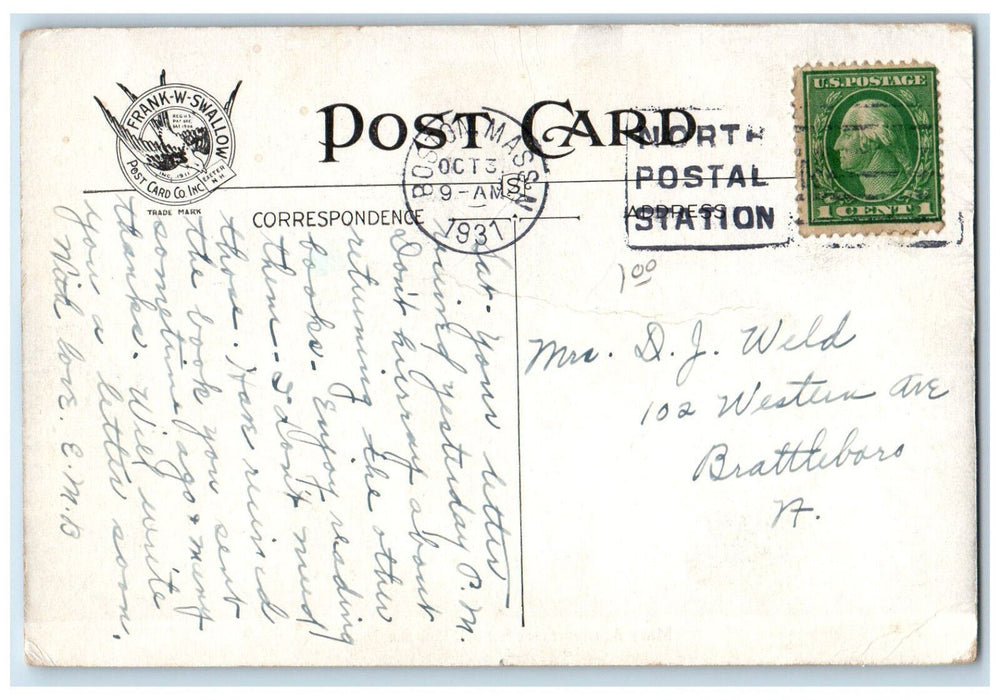 FRANK-W-SWALLOW
POST CARD CO INC
EXETER N.H.
INC. 1911
TRADE MARK
POST CARD
CORRESPONDENCE
ADDRESS
BOSTON MASS.
OCT 3
9-AM
1931
NORTH
POSTAL
STATION
U.S. POSTAGE
1 CENT 1
1.00
Sat. Your letter
received yesterday P.M.
Don't hurry about
returning the other
books. Enjoy reading
them - I don't need
those. Have received
the book you sent
sometime ago & many
thanks. Will write
you a letter soon.
With love. E.M.B
Mrs. D. J. Weld
102 Western Ave
Brattleboro
Vt.